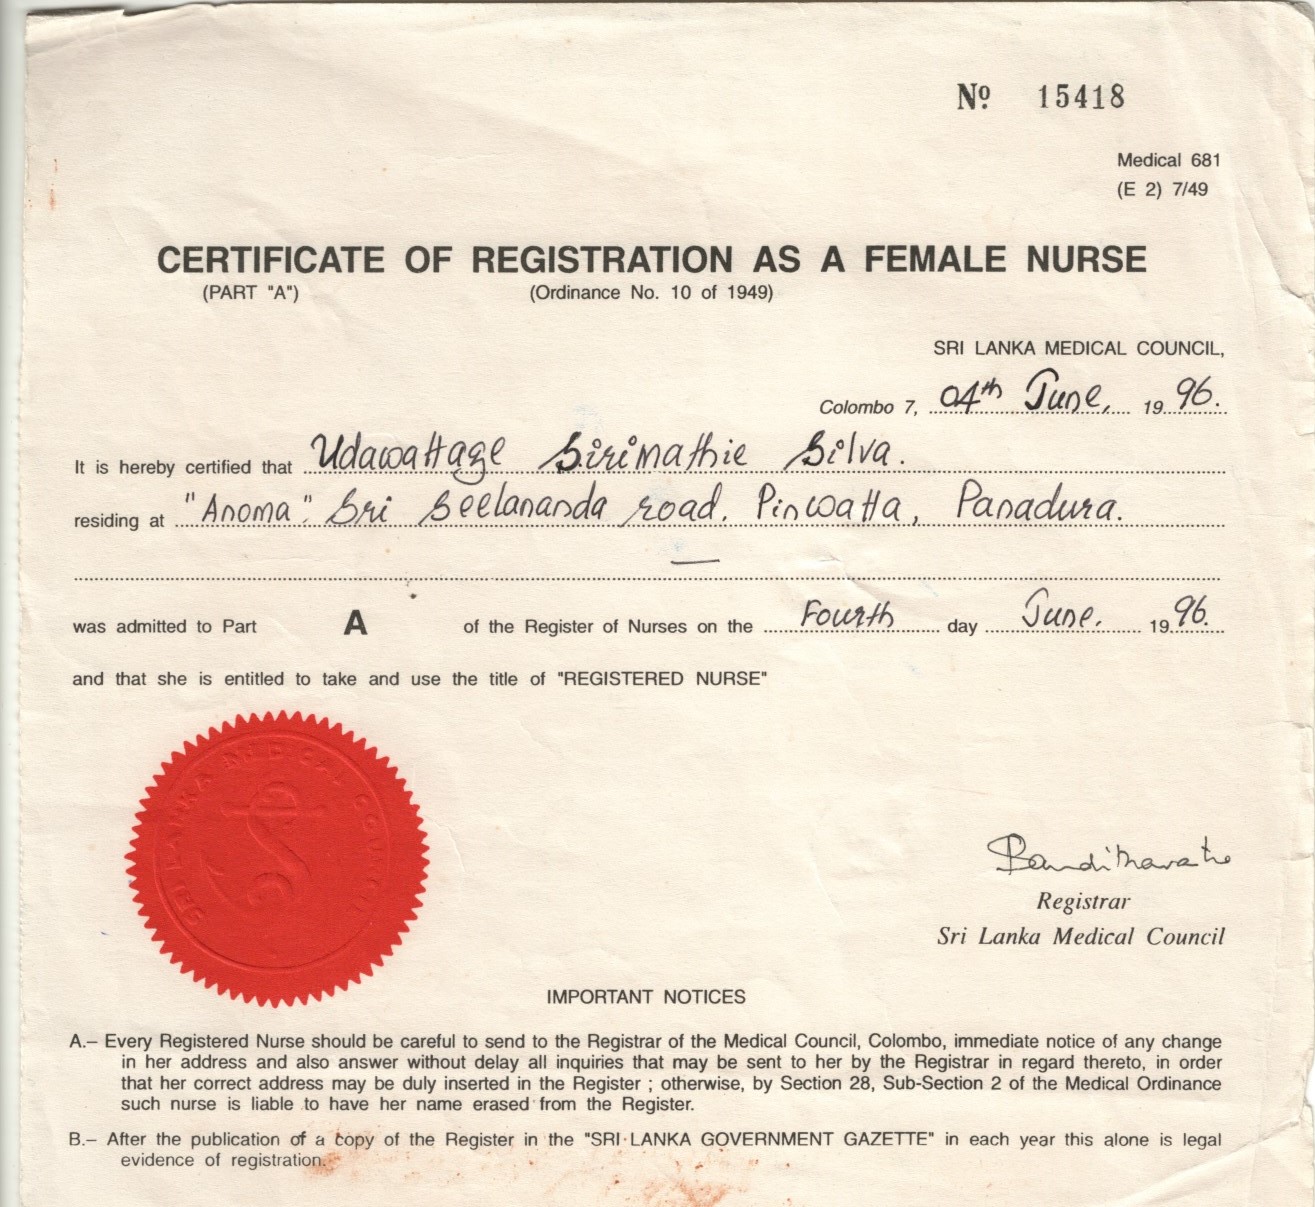 Nº 15418
Medical 681
(E 2) 7/49
CERTIFICATE OF REGISTRATION AS A FEMALE NURSE
(PART "A") (Ordinance No. 10 of 1949)
SRI LANKA MEDICAL COUNCIL,
Colombo 7, 04th June, 1996.
It is hereby certified that Udawattage Sirimathie Silva.
residing at "Anoma". Sri Seelananda road. Pinwatta, Panadura.
—
was admitted to Part A of the Register of Nurses on the Fourth day June. 1996.
and that she is entitled to take and use the title of "REGISTERED NURSE"
SRI LANKA MEDICAL COUNCIL
Registrar
Sri Lanka Medical Council
IMPORTANT NOTICES
A.– Every Registered Nurse should be careful to send to the Registrar of the Medical Council, Colombo, immediate notice of any change
in her address and also answer without delay all inquiries that may be sent to her by the Registrar in regard thereto, in order
that her correct address may be duly inserted in the Register ; otherwise, by Section 28, Sub-Section 2 of the Medical Ordinance
such nurse is liable to have her name erased from the Register.
B.– After the publication of a copy of the Register in the "SRI LANKA GOVERNMENT GAZETTE" in each year this alone is legal
evidence of registration.